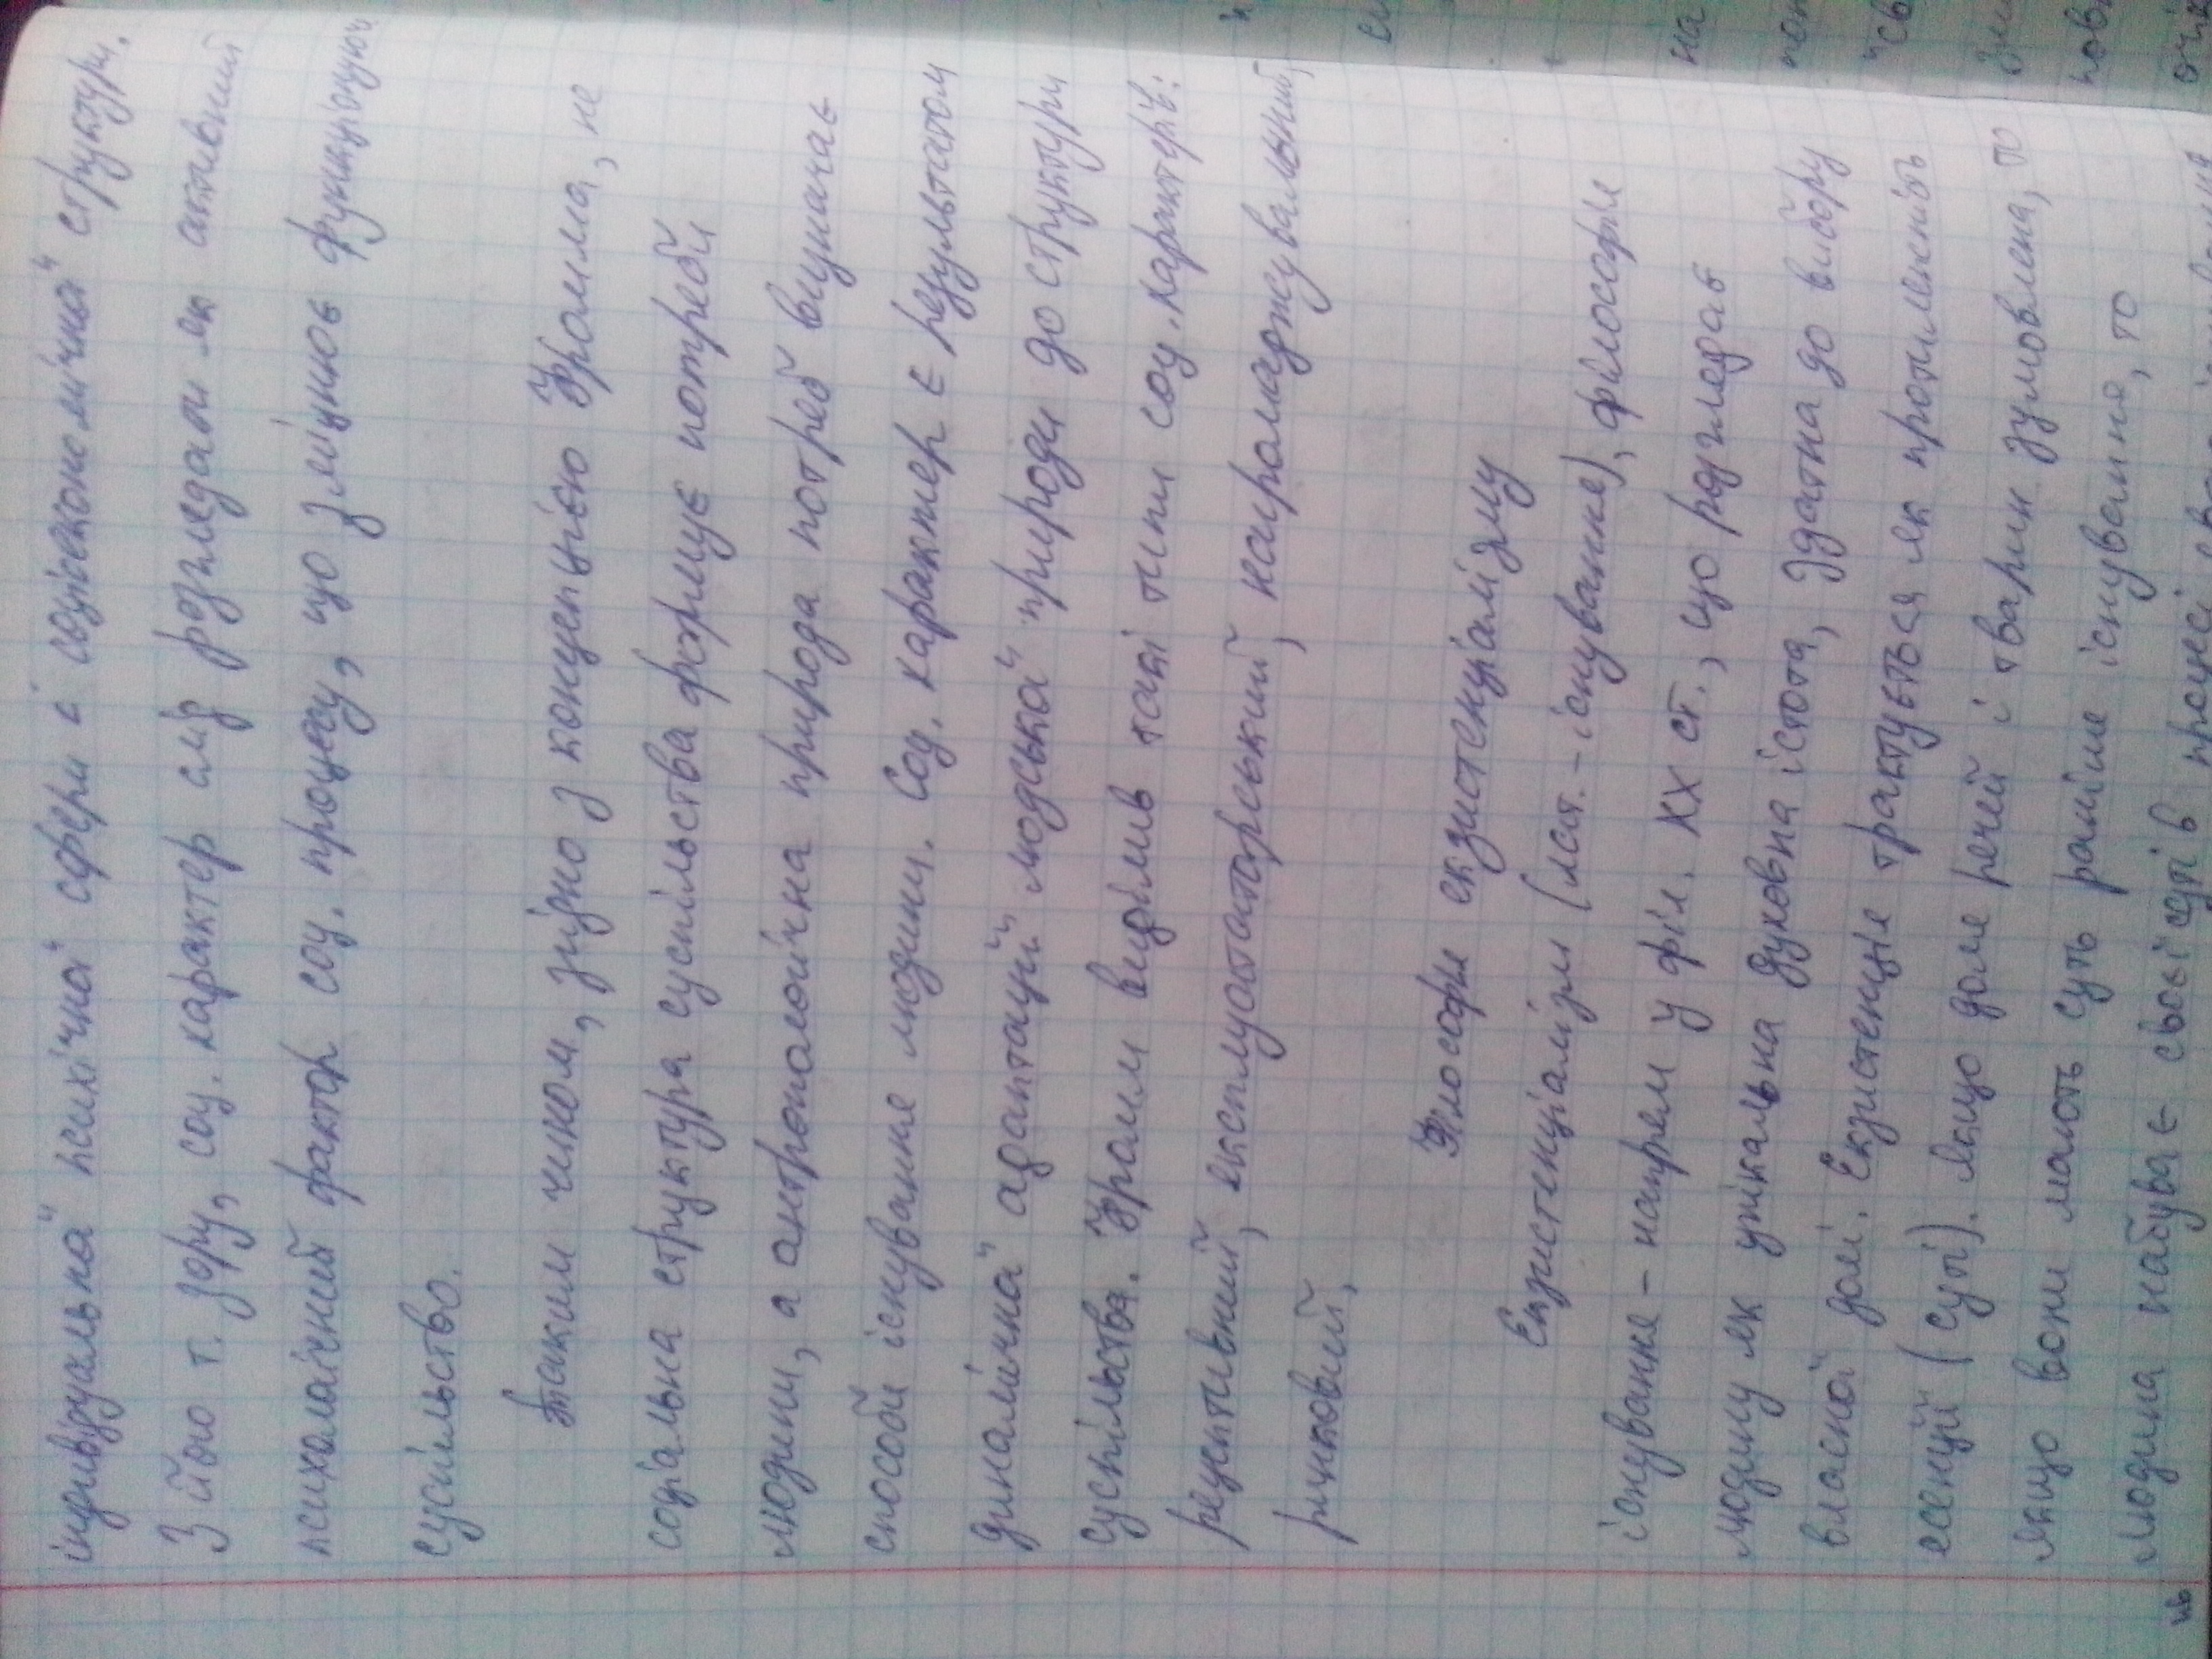 індивідуальної психічної сфери і соціоекономічної структури.
З його т. зору, соц. характер слід розглядати як активний
психологічний фактор соц. процесу, що зміцнює функціонуюче
суспільство.
Таким чином, згідно з концепцією Фромма, не
соціальна структура суспільства формує потреби
людини, а антропологічна природа потреб визначає
способи існування людини. Соц. характер є результатом
динамічної адаптації людської природи до структури
суспільства. Фромм виділив такі типи соц. характерів:
рецептивний, експлуататорський, нагромаджувальний,
ринковий.
Філософія екзистенціалізму
Екзистенціалізм (лат. – існування), філософія
існування – напрям у філ. ХХ ст., що розглядає
людину як унікальна духовна істота, здатна до вибору
власної долі. Екзистенція трактується як протилежність
есенції (суті). Якщо доля речей і тварин зумовлена, то
якщо вони мають суть раніше існування, то
людина набуває своєї суті в процесі